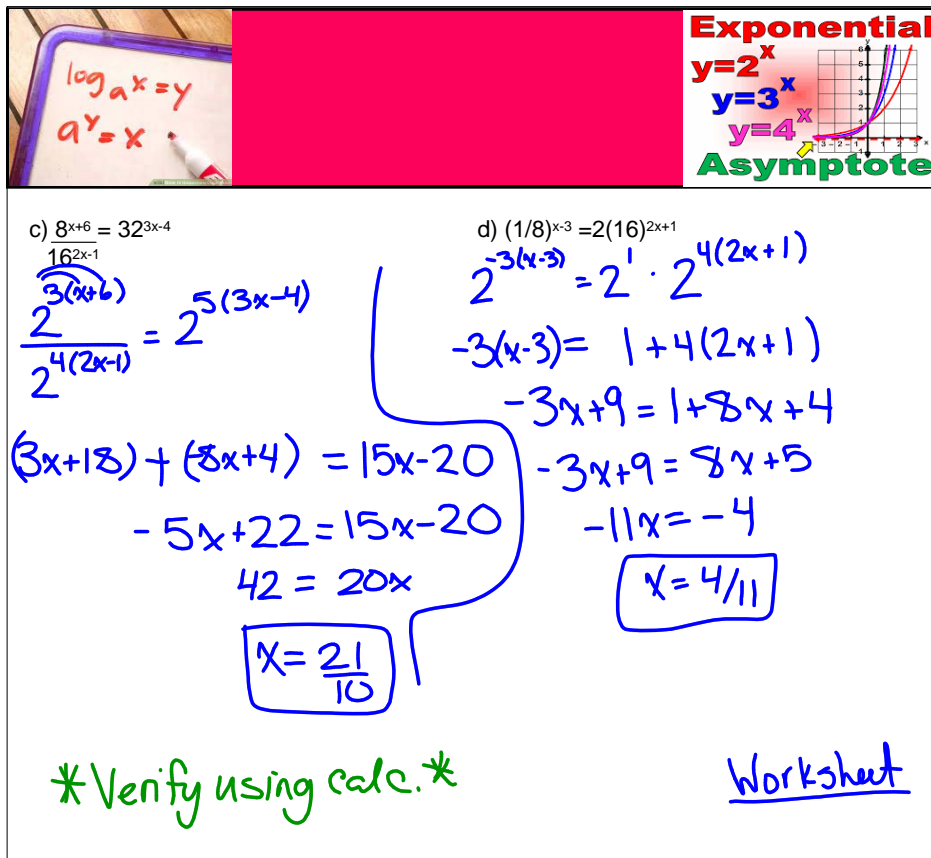 log_a x = y
a^y = x
Exponential
y=2^x
y=3^x
y=4^x
Asymptote
c) 8^(x+6) = 32^(3x-4)
16^(2x-1)
2^(3(x+6)) / 2^(4(2x-1)) = 2^(5(3x-4))
(3x+18) + (-8x+4) = 15x-20
-5x+22 = 15x-20
42 = 20x
x = 21/10
d) (1/8)^(x-3) =2(16)^(2x+1)
2^(-3(x-3)) = 2^1 · 2^(4(2x+1))
-3(x-3) = 1+4(2x+1)
-3x+9 = 1+8x+4
-3x+9 = 8x+5
-11x = -4
x = 4/11
*Verify using calc.*
Worksheet